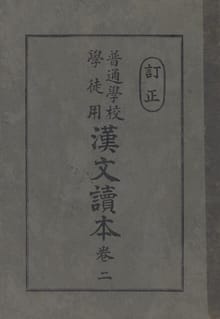 訂正
普通學校
學徒用
漢文讀本卷二